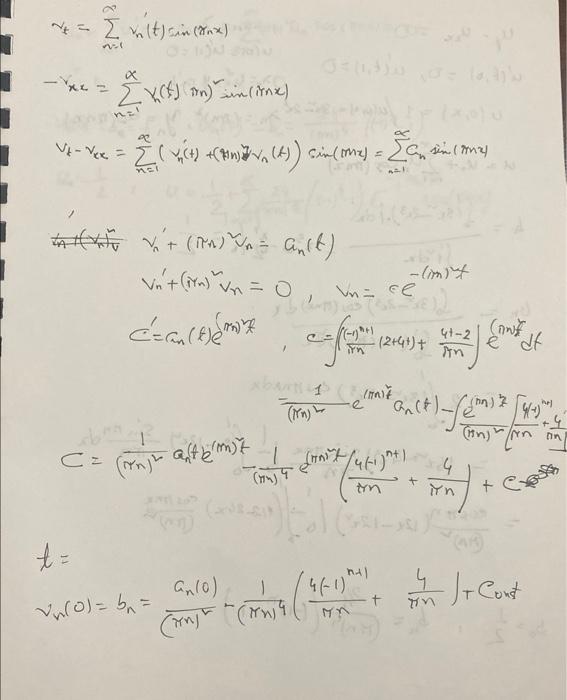 v_t = ∑_{n=1}^{∞} v_n'(t) sin(πnx)
-v_xx = ∑_{n=1}^{∞} v_n(t) (πn)² sin(πnx)
v_t - v_xx = ∑_{n=1}^{∞} (v_n'(t) + (πn)² v_n(t)) sin(πnx) = ∑_{n=1}^{∞} a_n sin(πnx)
v_n' + (πn)² v_n = a_n(t)
v_n' + (πn)² v_n = 0, v_n = ce^{-(πn)²t}
C' = a_n(t) e^{(πn)²t}, c = ∫ [(-1)^{n+1}/πn (2+4t) + (4t-2)/πn] e^{(πn)²t} dt
= 1/(πn)² e^{(πn)²t} a_n(t) - ∫ e^{(πn)²t}/(πn)² [4(-1)^{n+1}/πn + 4/πn]
C = 1/(πn)² a_n t e^{(πn)²t} - 1/(πn)⁴ e^{(πn)²t} (4(-1)^{n+1}/πn + 4/πn) + C
t =
v_n(0) = b_n = a_n(0)/(πn)² - 1/(πn)⁴ (4(-1)^{n+1}/πn + 4/πn) + Const